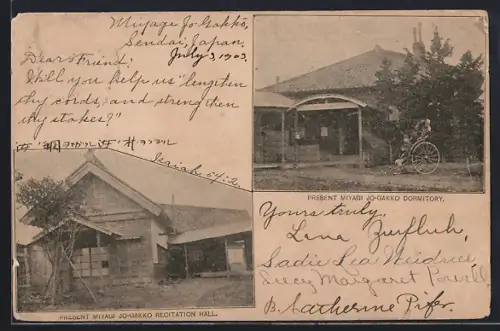 Miyagi Jo Gakko,
Sendai, Japan,
July 3, 1903.
Dear Friend:
Will you help us "lengthen
thy cords, and strengthen
thy stakes?"
Isaiah 54:2.
PRESENT MIYAGI JO-GAKKO DORMITORY.
PRESENT MIYAGI JO-GAKKO RECITATION HALL.
Yours truly,
Lena Zurfluh,
Sadie Lea Weidner
Lucy Margaret Powell
B. Catherine Pifer.